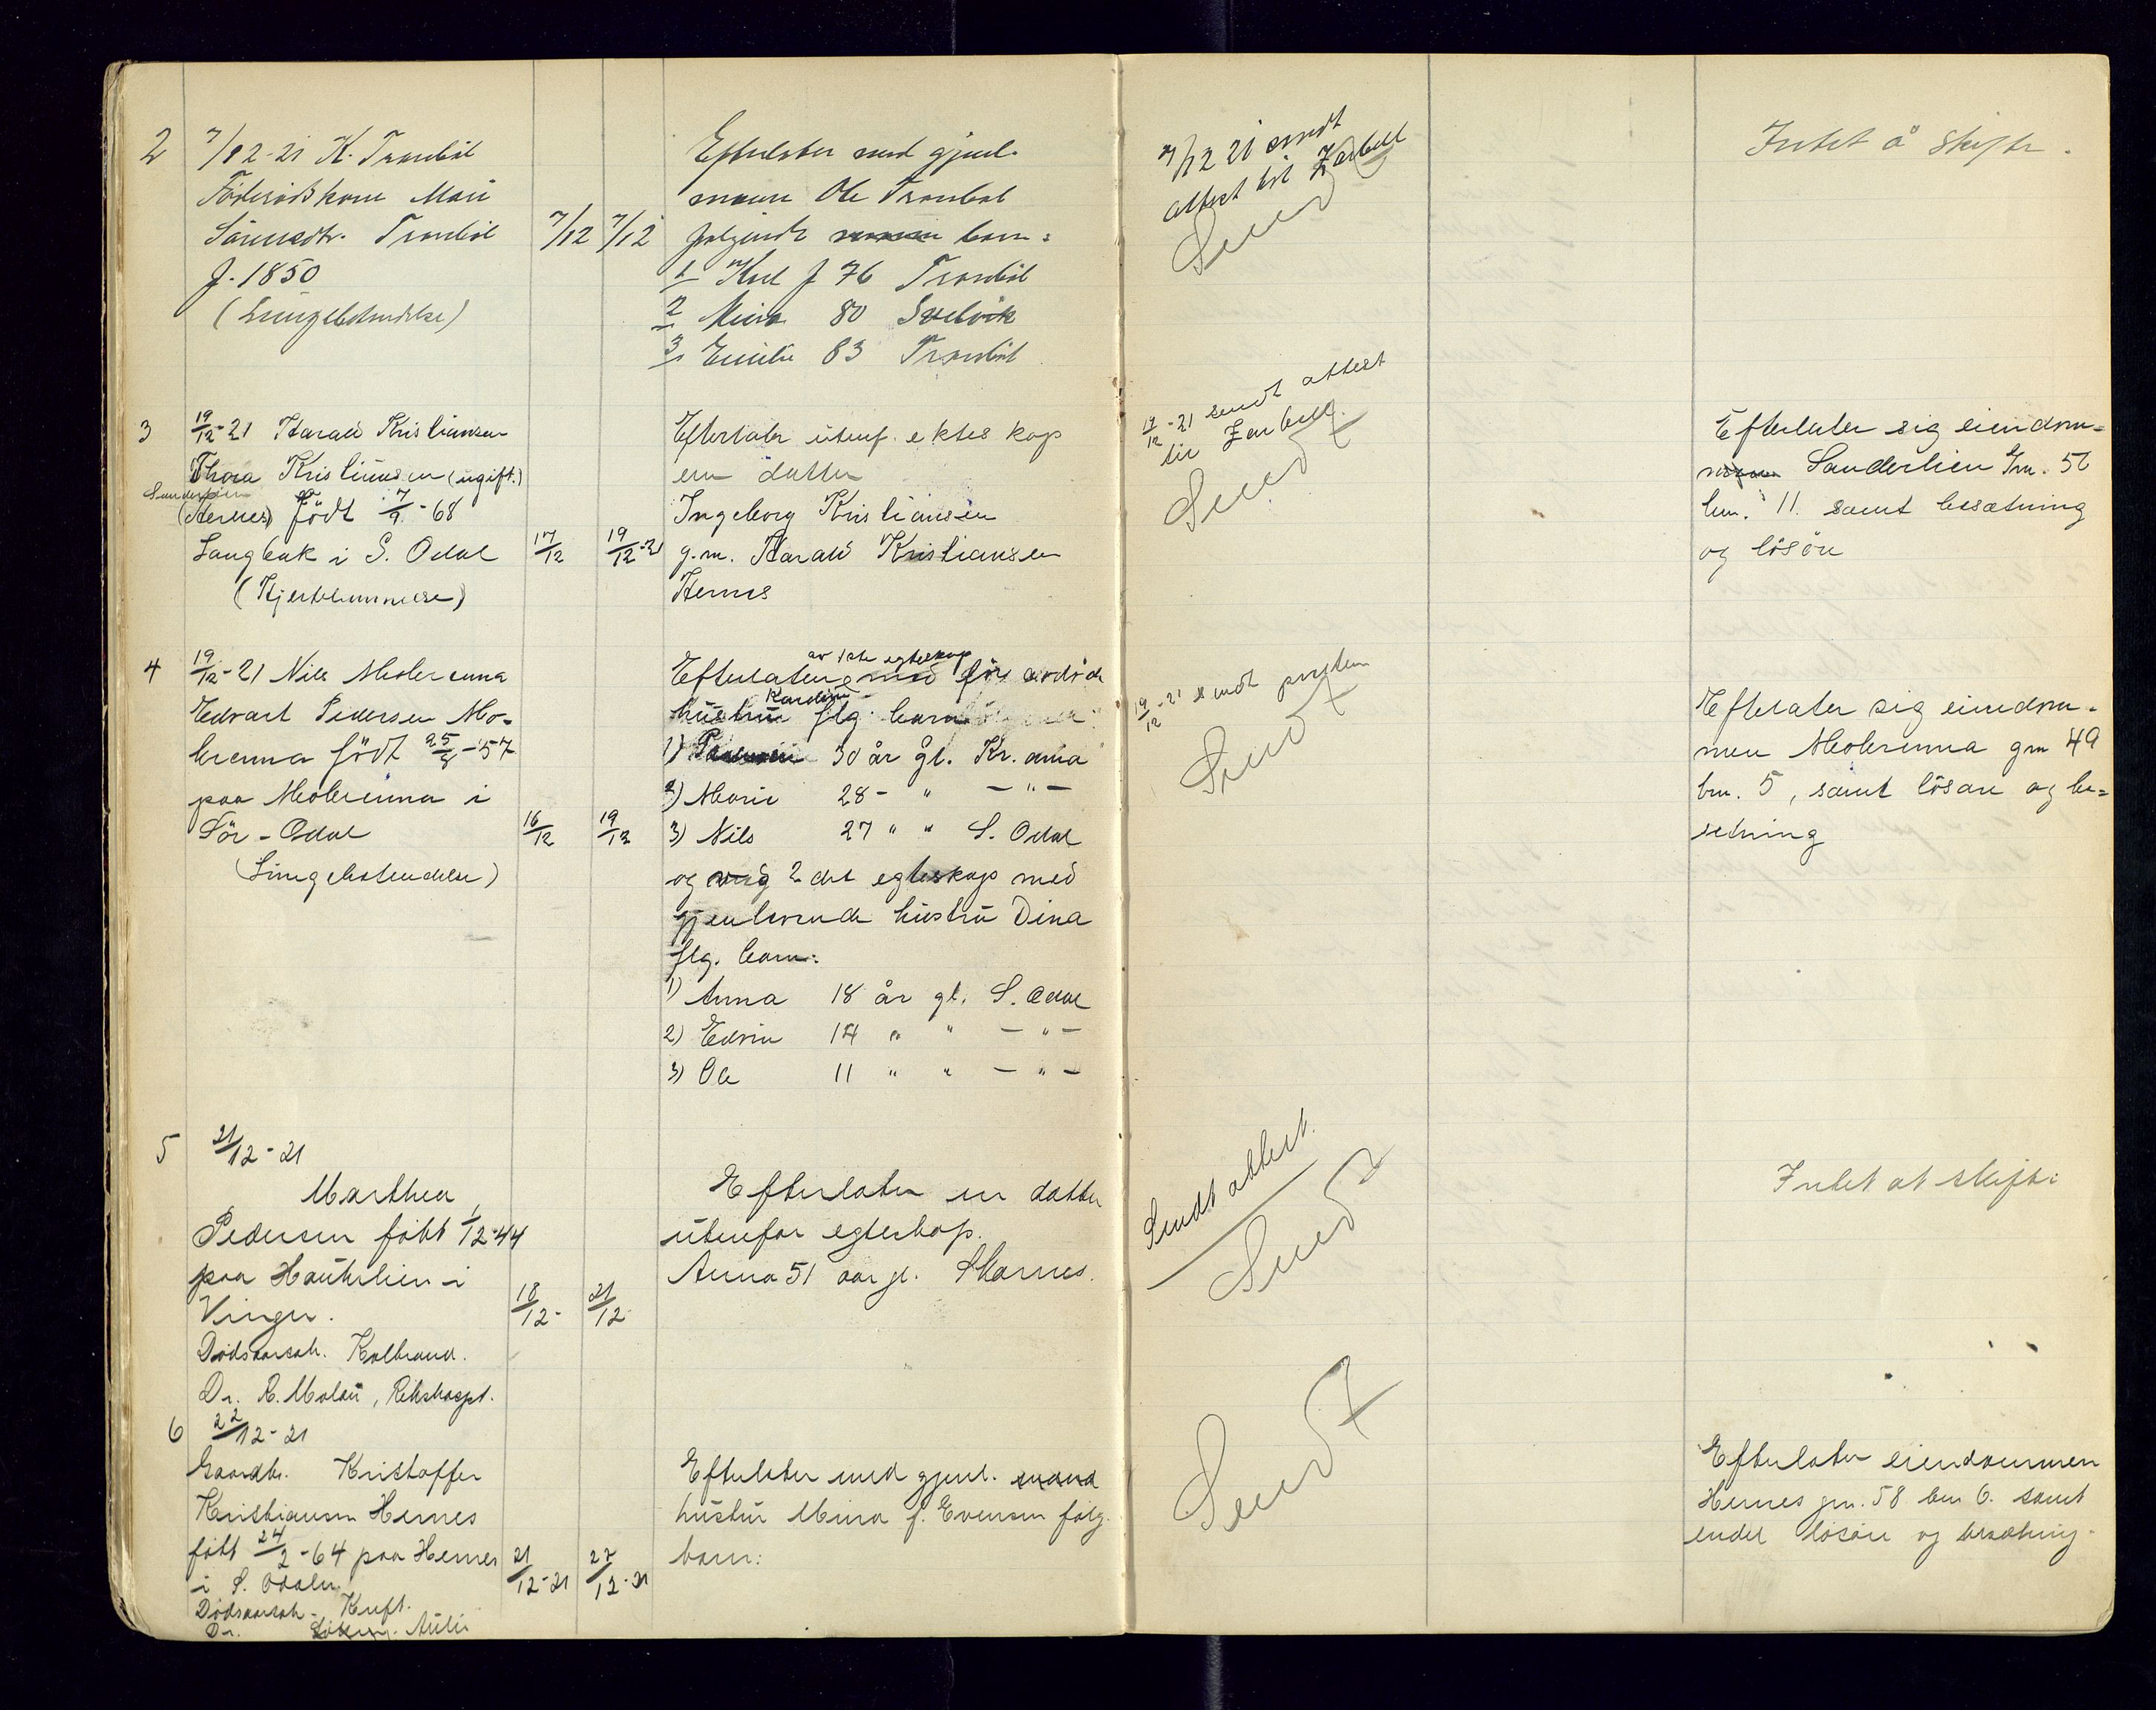 2
7/12-21 K. Trondböl
Föderådskone Mari
Sörensdtr. Trondböl
f. 1850
(Lungebetendelse)
7/12
7/12
Efterlater med gjenl.
mann Ole Trondböl
følgende barn:
1 Karl f 76 Trondböl
2 Mina 80 Svelvik
3 Emilie 83 Trondböl
7/12 21 sendt
attest til Zarbell
Sendt
Intet å skifte.
3
19/12-21 Harald Kristiansen
Thora Kristiansen (ugift.)
Sanderlien
(Hernes) født 7/9-68
Langbak i S. Odal
(Hjertelammelse)
17/12
19/12-21
Efterlater utenf. ekteskap
en datter
Ingeborg Kristiansen
g.m. Harald Kristiansen
Hernes
19/12-21 sendt attest
til Zarbell.
Sendt
Efterlater sig eiendom-
men Sanderlien Gm. 56
bm. 11. samt besætning
og lösöre
4
19/12-21 Nils Mobrenna
Edvart Pedersen Mo-
brenna födt 25/8-57
paa Mobrenna i
Sör-Odal
(Lungebetendelse)
16/12
19/12
av 1ste egteskap
Efterlater med før avdøde
Karoline
hustru flg. barn
1) 30 år gl. Kr.ania
2) Marie 28 - " - " -
3) Nils 27 " " S. Odal
og 2det egteskap med
gjenlevende hustru Dina
flg. barn:
1) Anna 18 år gl. S. Odal
2) Edvin 14 " " - " -
3) Ole 11 " " - " -
19/12-21 sendt presten
Sendt
Efterlater sig eiendom-
men Mobrenna gm 49
bm. 5, samt lösöre og be-
setning
5
21/12-21
Marthea
Pedersen født 1/12-44
paa Hauterlien i
Vinger.
Dødsaarsak. Kolbrand.
Dr. R. Malau, Rikshospt.
18/12-
21/12-
Efterlater en datter
utenfor egteskap.
Anna 51 aar gl. Skarnes.
Sendt attest.
Sendt
Intet at skifte
6
22/12-21
Gaardbr. Kristoffer
Kristiansen Hernes
født 24/2-64 paa Hernes
i S. Odalen
Dødsaarsak - Kreft.
Dr. Aulie
21/12-21
22/12-21
Efterlater med gjenl.
hustru Mina f. Evensen følg.
barn:
Sendt
Efterlater eiendommen
Hernes gm. 58 bm 6. samt
endel løsøre og besætning.